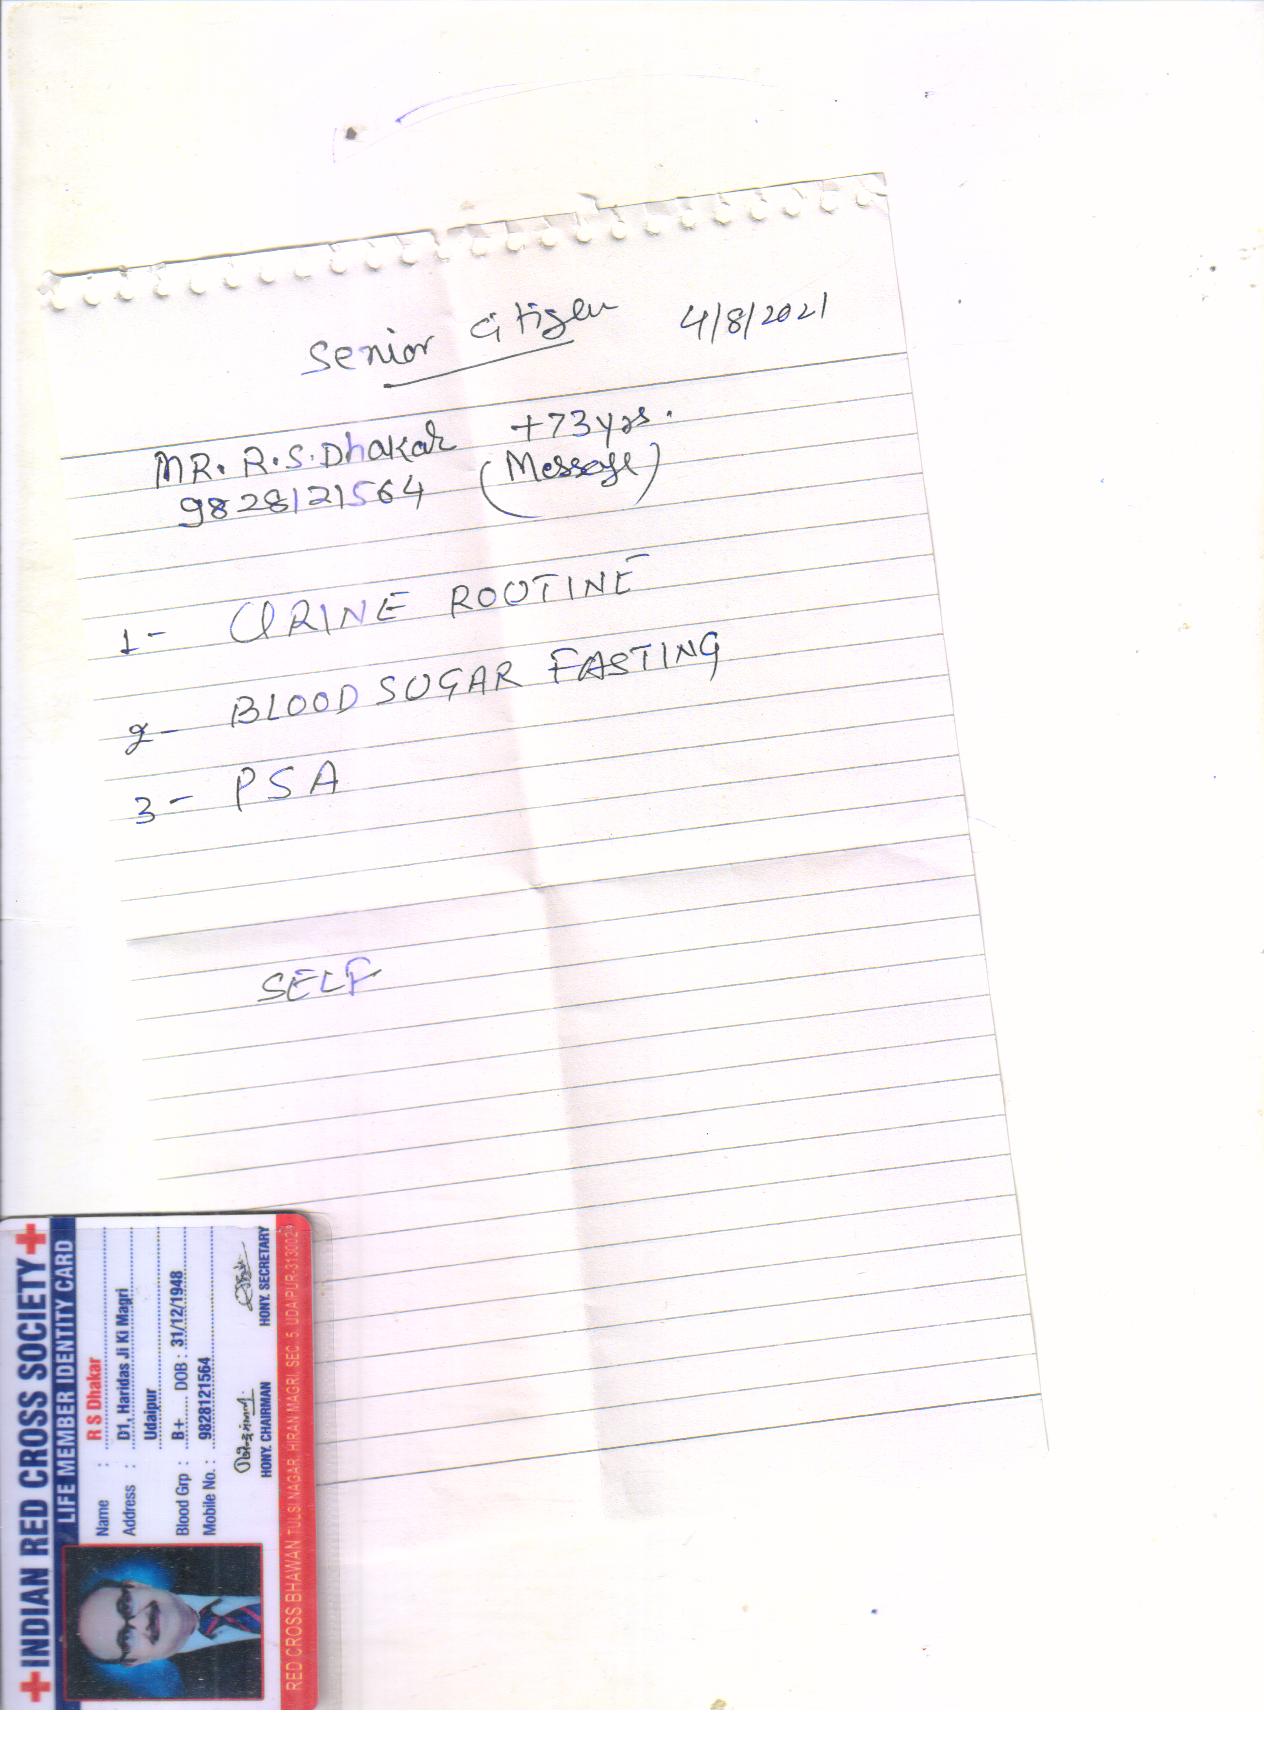 Senior Citizen 4/8/2021
MR. R.S. Dhakar +73 yrs.
9828121564 (Message)
1- URINE ROUTINE
2- BLOOD SUGAR FASTING
3- PSA
SELF
INDIAN RED CROSS SOCIETY
LIFE MEMBER IDENTITY CARD
Name : R S Dhakar
Address : D1, Haridas Ji Ki Magri
Udaipur
Blood Grp : B+ DOB : 31/12/1948
Mobile No. : 9828121564
HONY. CHAIRMAN HONY. SECRETARY
RED CROSS BHAWAN TULSI NAGAR, HIRAN MAGRI, SEC. 5, UDAIPUR-313002